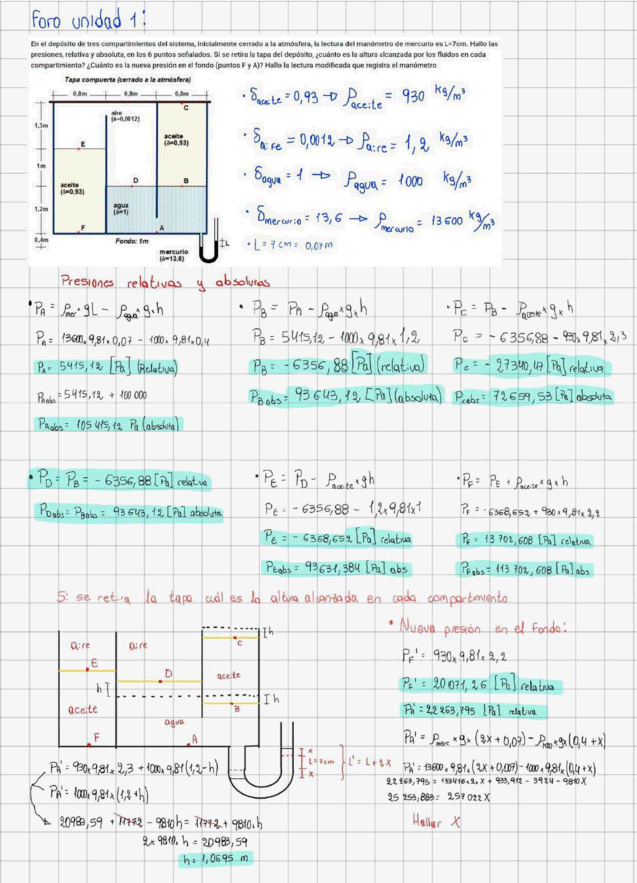 Foro unidad 1:
En el depósito de tres compartimientos del sistema, inicialmente cerrado a la atmósfera, la lectura del manómetro de mercurio es L=7cm. Hallo las
presiones, relativa y absoluta, en los 6 puntos señalados. Si se retira la tapa del depósito, ¿cuánto es la altura alcanzada por los fluidos en cada
compartimiento? ¿Cuánto es la nueva presión en el fondo (puntos F y A)? Hallo la lectura modificada que registra el manómetro
Tapa compuerta (cerrado a la atmósfera)
0,8m 0,8m 0,8m
C
aire
(δ=0,0012)
1,3m
aceite
(δ=0,93)
E
1m
D B
aceite
(δ=0,93)
agua
(δ=1)
1,2m
F A
0,4m Fondo: 1m L
mercurio
(δ=13,6)
• δaceite = 0,93 → ρaceite = 930 kg/m³
• δaire = 0,0012 → ρaire = 1,2 kg/m³
• δagua = 1 → ρagua = 1000 kg/m³
• δmercurio = 13,6 → ρmercurio = 13600 kg/m³
• L = 7cm = 0,07m
Presiones relativas y absolutas
• PA = ρmer · gL - ρagua × g × h
PA = 13600 × 9,81 × 0,07 - 1000 × 9,81 × 0,4
PA = 5415,12 [Pa] (Relativa)
PAabs = 5415,12 + 100 000
PAabs = 105 415,12 Pa (absoluta)
• PB = PA - ρagua × g × h
PB = 5415,12 - 1000 × 9,81 × 1,2
PB = -6356,88 [Pa] (relativa)
PB abs = 93643,12 [Pa] (absoluta)
• PC = PB - ρaceite × g × h
PC = -6356,88 - 930 × 9,81 × 2,3
PC = -27340,47 [Pa] relativa
PCabs = 72659,53 [Pa] absoluta
• PD = PB = -6356,88 [Pa] relativa
PDabs = PBabs = 93643,12 [Pa] absoluta
• PE = PD - ρaceite × gh
PE = -6356,88 - 1,2 × 9,81 × 1
PE = -6368,652 [Pa] relativa
PEabs = 93631,384 [Pa] abs
• PF = PE + ρaceite × g × h
PF = -6368,652 + 930 × 9,81 × 2,2
PF = 13 702,608 [Pa] relativa
PFabs = 113 702,608 [Pa] abs
Si se retira la tapa cuál es la altura alcanzada en cada compartimento
aire aire h
C
E
D aceite
h h
aceite B
agua
F A
x
L=7cm
x
L' = L + 2x
PA' = 930 × 9,81 × 2,3 + 1000 × 9,81 (1,2-h)
PA' = 1000 × 9,81 × (1,2+h)
20983,59 + 11772 - 9810h = 11772 + 9810 × h
2 × 9810 × h = 20983,59
h = 1,0695 m
• Nueva presión en el fondo:
PF' = 930 × 9,81 × 2,2
PF' = 20 071,26 [Pa] relativa
PA' = 22 263,795 [Pa] relativa
PA' = ρmerc × g × (2x + 0,07) - ρH2O × g × (0,4 + x)
PA' = 13600 × 9,81 × (2x + 0,07) - 1000 × 9,81 × (0,4+x)
25 253,883 = 257 022 x
Hallar x